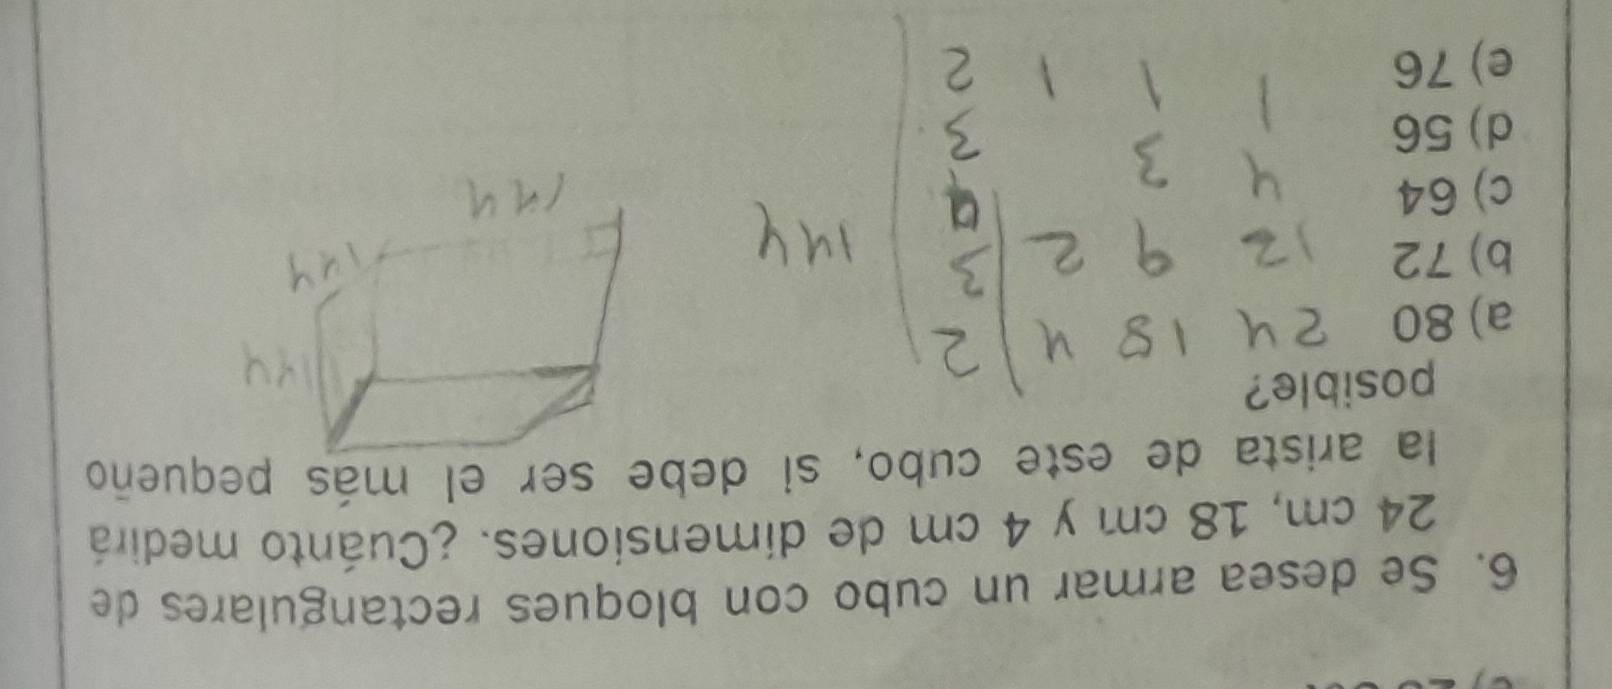 6. Se desea armar un cubo con bloques rectangulares de
24 cm, 18 cm y 4 cm de dimensiones. ¿Cuánto medirá
la arista de este cubo, si debe ser el más pequeño
posible?
a) 80
b) 72
c) 64
d) 56
e) 76
24 18 4 2
12 9 2 3
4 3
1 1 1
3
2
144
144
144
144